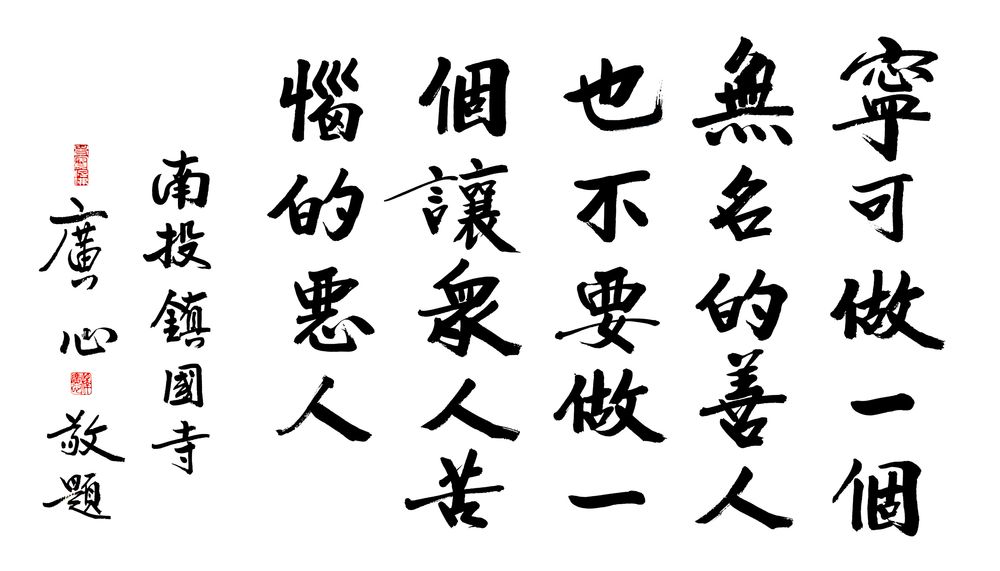 寧可做一個
無名的善人
也不要做一
個讓眾人苦
惱的惡人
南投鎮國寺
廣心敬題